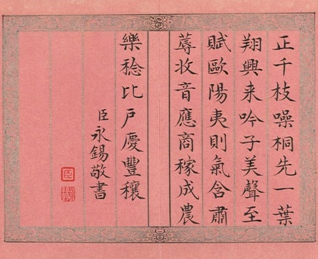 正千枝噪桐先一葉
翔興来吟子美聲至
賦歐陽夷則氣含肅
蓐收音應商稼成農
樂稔比户慶豐穰
臣永錫敬書